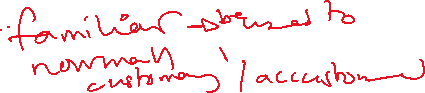 familiar → be used to
normal
customary / accustomed